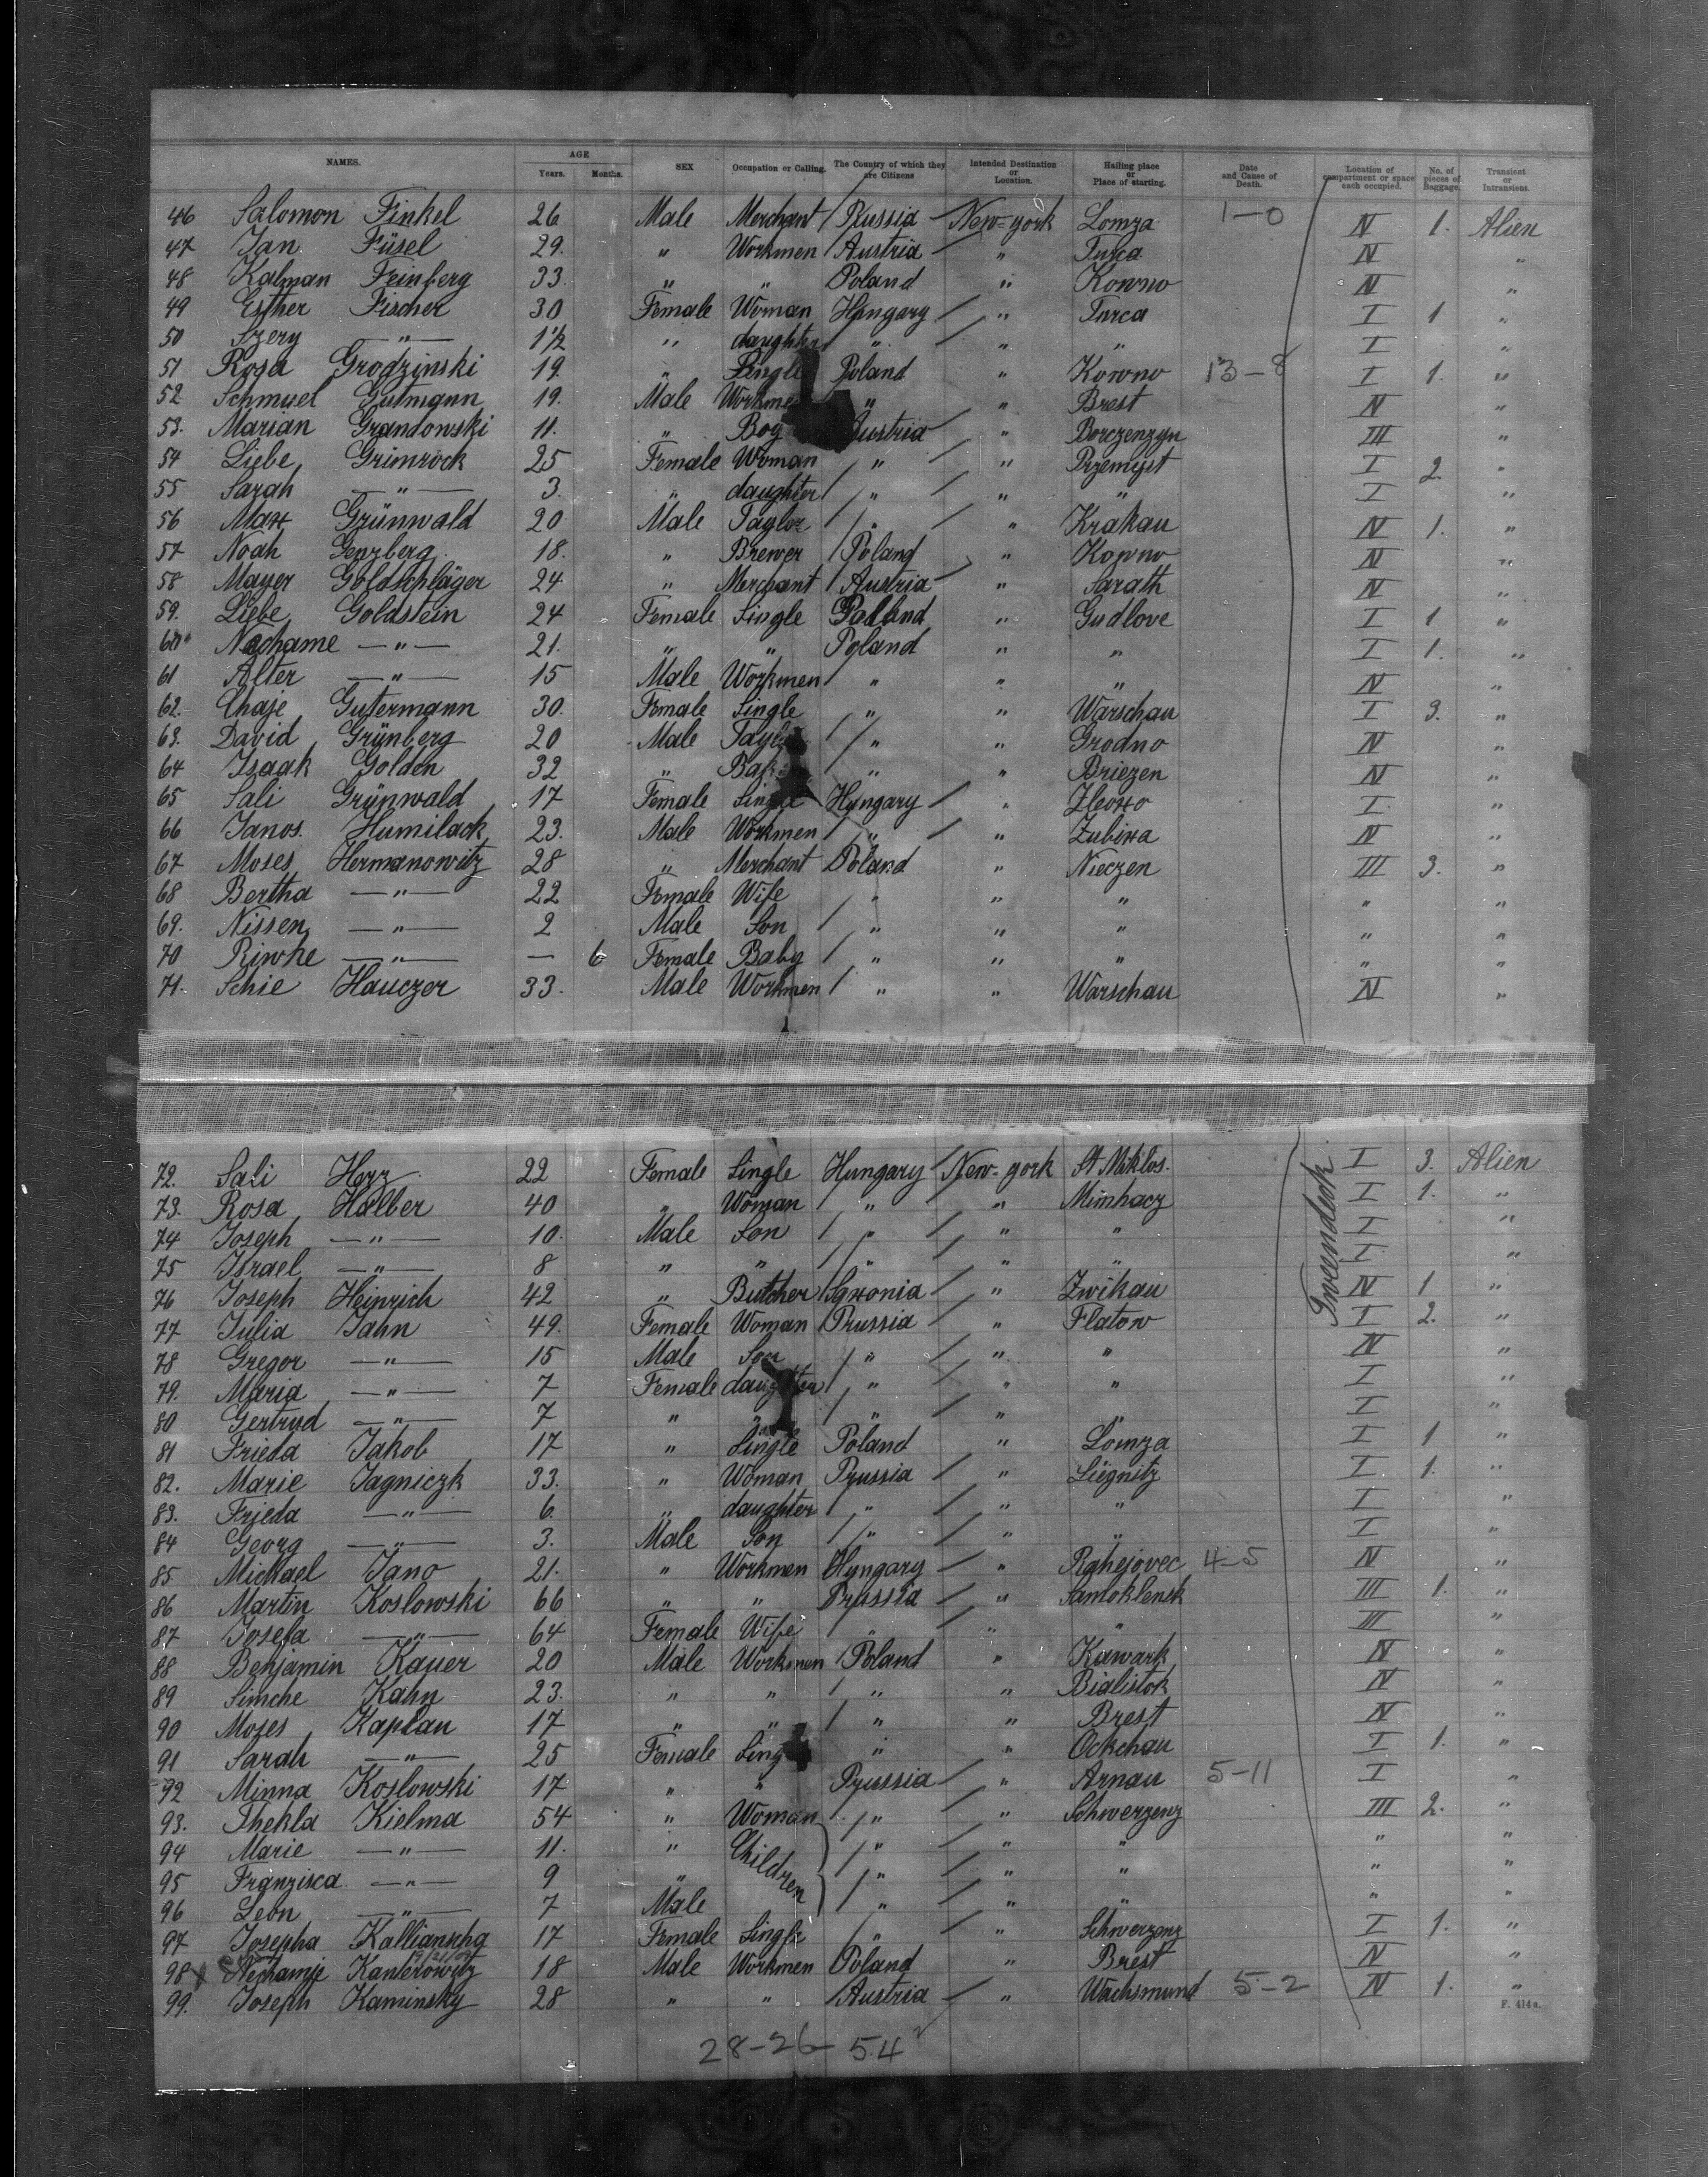 NAMES. AGE Years. Months. SEX Occupation or Calling. The Country of which they are Citizens Intended Destination or Location. Hailing place or Place of starting. Date and Cause of Death. Location of compartment or space each occupied. No. of pieces of Baggage. Transient or Intransient.
46 Salomon Finkel 26 Male Merchant Russia New-york Lomza 1-0 IV 1. Alien
47 Jan Füsel 29. " Workmen Austria " Turca IV "
48 Kalman Feinberg 33. " " Poland " Kowno IV "
49 Esther Fischer 30 Female Woman Hungary " Turca I 1 "
50 Szery —"— 1½ " daughter " " " I "
51 Rosa Grodzinski 19. " Single Poland " Kowno 13-8 I 1. "
52 Schmuel Gutmann 19. Male Workmen " " Brest IV "
53. Marian Grandowski 11. " Boy Austria " Borczenzyn III "
54 Liebe Grimrock 25 Female Woman " " Przemyst I 2. "
55 Sarah —"— 3. " daughter " " " I "
56 Max Grünwald 20 Male Taylor " " Krakau IV 1. "
57 Noah Genzberg 18. " Brewer Poland " Kowno IV "
58 Mayer Goldschläger 24 " Merchant Austria " Sarath IV "
59. Liebe Goldstein 24 Female Single Poland " Gudlove I 1 "
60 Nachame —"— 21. " " Poland " " I 1. "
61 Alter —"— 15 Male Workmen " " " IV "
62. Chaje Gutermann 30. Female Single " " Warschau I 3. "
63. David Grünberg 20 Male Taylor " " Grodno IV "
64 Isaak Golden 32 " " " Briezen IV "
65 Sali Grünwald 17 Female Single Hungary " Zleoxo I "
66 Janos. Humilack 23. Male Workmen " " Zubixa IV "
67 Moses Hermanowitz 28 " Merchant Poland " Nieczen III 3. "
68 Bertha —"— 22 Female Wife " " " " "
69. Nissen —"— 2 Male Son " " " " "
70 Riwke —"— — 6 Female Baby " " " " "
71. Schie Hauczer 33. Male Workmen " " Warschau IV "
72. Sali Herz 22 Female Single Hungary New-york St Miklos. I 3. Alien
73. Rosa Halber 40 " Woman " " Mimhacz I 1. "
74 Joseph —"— 10. Male Son " " " I "
75 Israel —"— 8 " " " " " I "
76 Joseph Heinrich 42 " Butcher Saxonia " Zwikau IV 1 "
77 Julia Jahn 49. Female Woman Prussia " Flatow I 2. "
78 Gregor —"— 15 Male Son " " " IV "
79. Maria —"— 7 Female daughter " " " I "
80 Gertrud —"— 7 " " " " " I "
81 Frieda Jakob 17 " Single Poland " Lomza I 1 "
82. Marie Jagniczk 33. " Woman Prussia " Liegnitz I 1. "
83. Frieda —"— 6. " daughter " " " I "
84 Georg —"— 3. Male Son " " " I "
85 Michael Jano 21. " Workmen Hungary " Rahejovec 4-5 IV "
86 Martin Koslowski 66 " " Prussia " Samoklensk III 1. "
87 Josefa —"— 64 Female Wife " " " III "
88 Benjamin Kauer 20 Male Workmen Poland " Kawark IV "
89 Simche Kahn 23. " " " " Bialistok IV "
90 Mozes Kaplan 17 " " " " Brest IV "
91 Sarah —"— 25 Female Single " " Ockchau I 1. "
92 Minna Koslowski 17 " " Prussia " Arnau 5-11 I "
93. Thekla Kielma 54 " Woman " " Schwerzenz III 2. "
94 Marie —"— 11. " Children " " " " "
95 Franzisca —"— 9 " " " " " "
96 Leon —"— 7 Male " " " " "
97 Josepha Kallianscha 17 Female Single " " Schwerzenz I 1. "
98 Nechamje Kanterowitz 18 Male Workmen Poland " Brest IV "
99. Joseph Kaminsky 28 " " Austria " Wachsmund 5-2 IV 1. "
F. 414 a.
28-26- 54